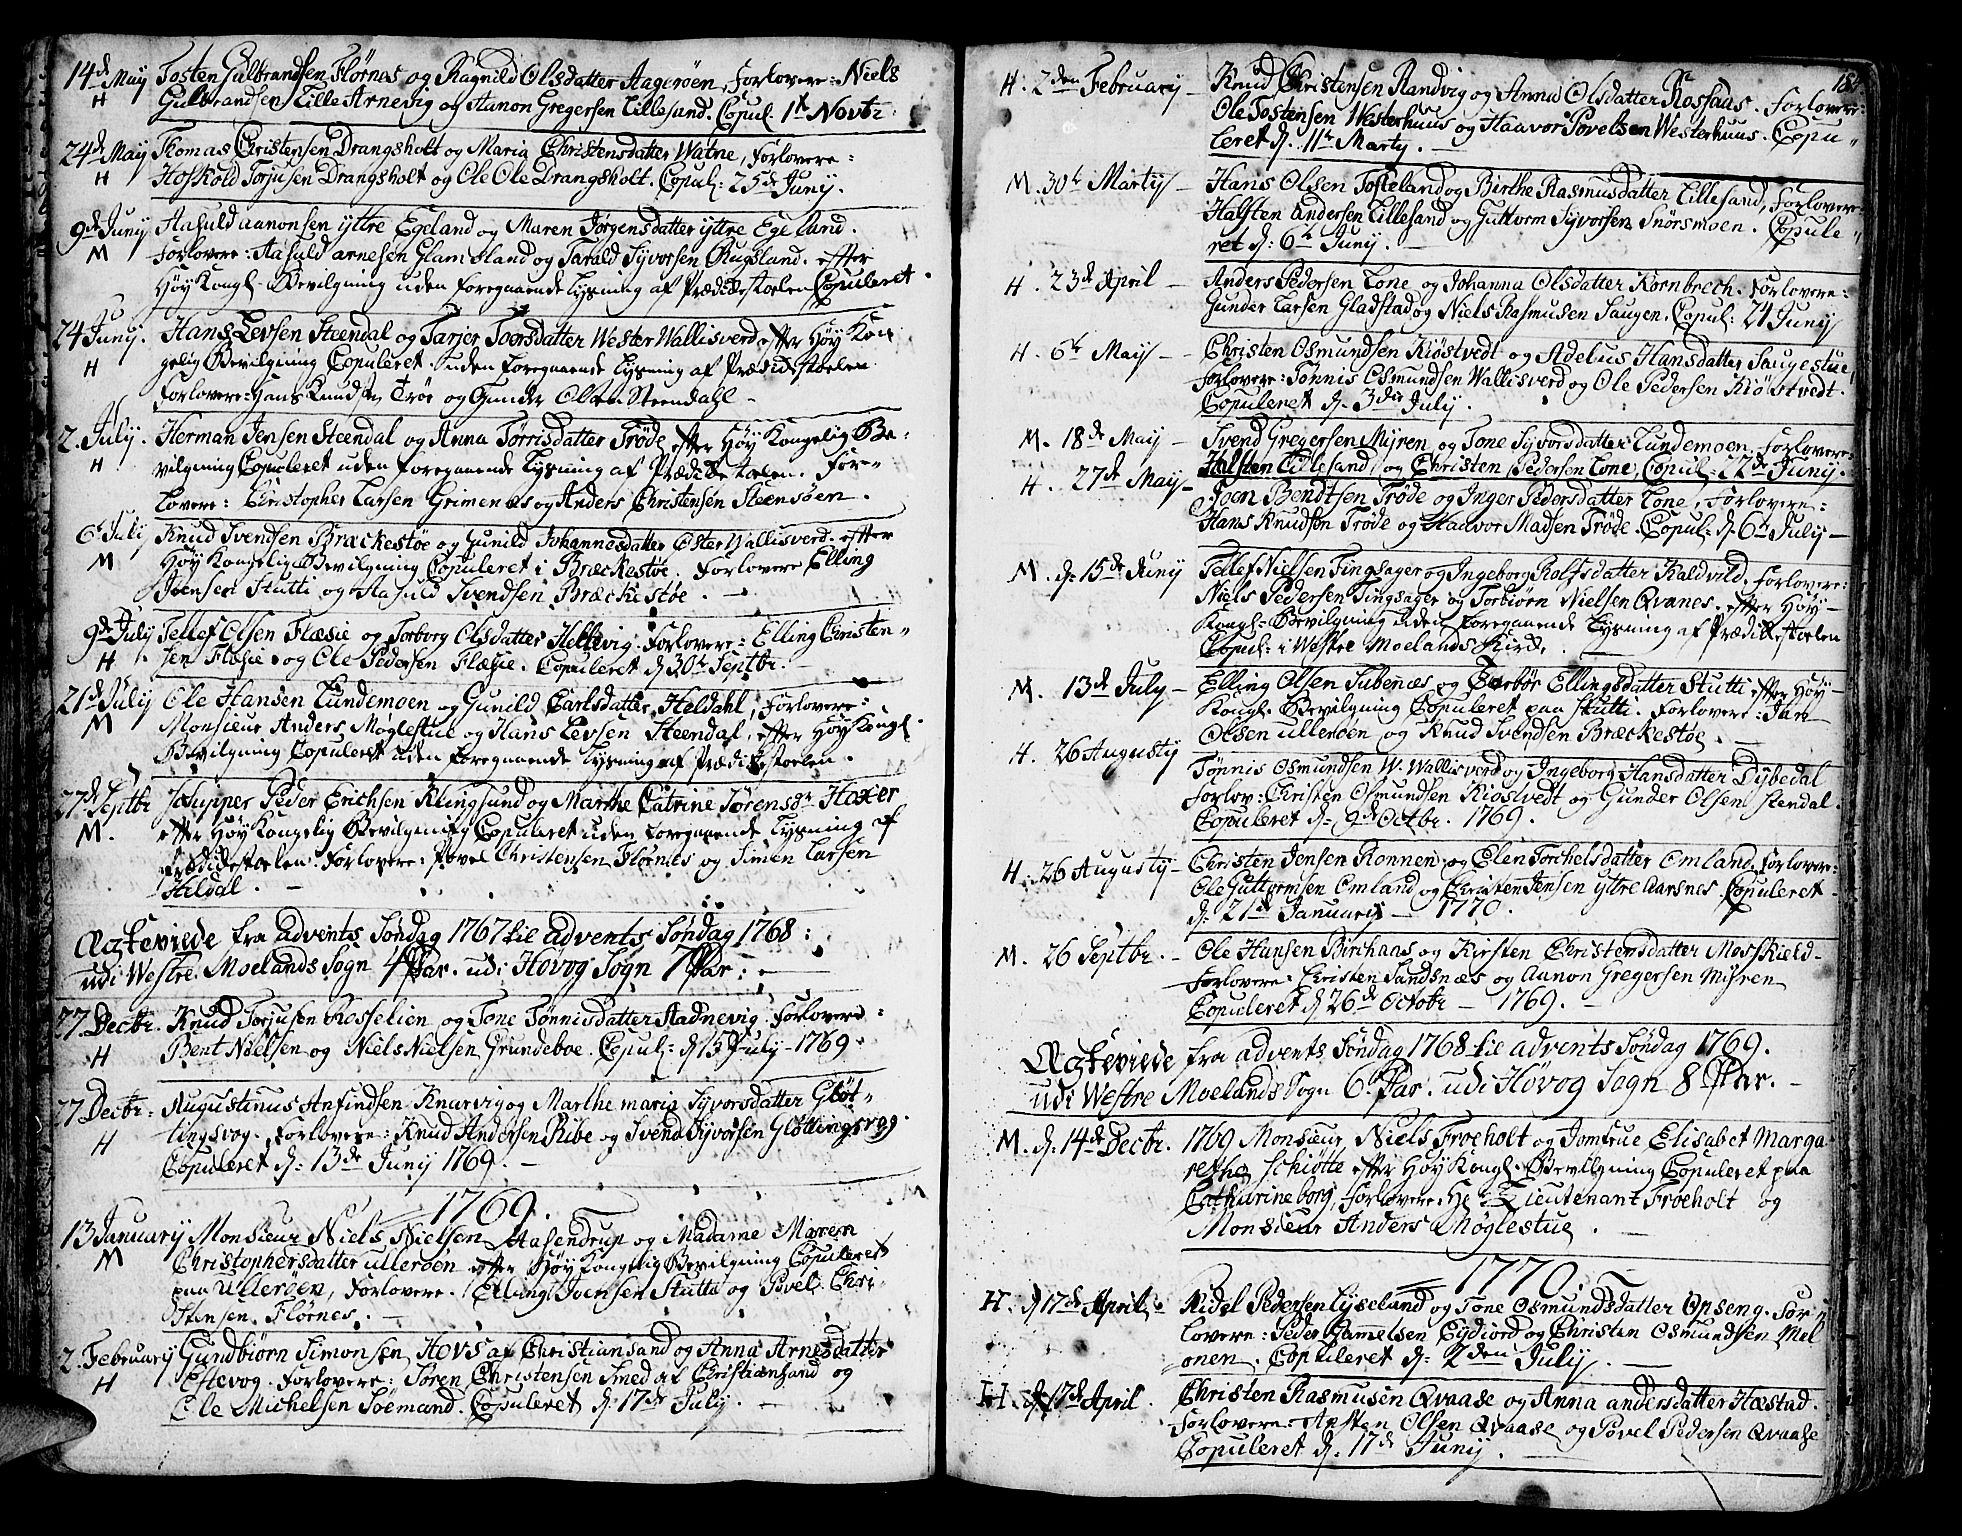 14de May Tosten Gulbrandsen Flørnes og Ragnild Olsdatter Aagerøen, Forlovere: Niels
H Gulbrandsen Lille Arnevig og Aanon Gregersen Lillesand. Copul. 1t Novbr.
24de May Thomas Christensen Drangsholt og Maria Christensdatter Watne, Forlovere:
H Hoskold Torjusen Drangsholt og Ole Ole Drangsholt. Copul: 25de Junij.
9de Junij Aasuld Aanonsen yttre Egeland og Maren Jørgensdatter yttre Egeland.
M Forlovere: Aasuld Arnesen Glamsland og Tarald Syvorsen Rugsland. efter
Høy Kongl. Bevilgning uden foregaaende Lysning af Prædikestoelen Copuleret.
24 Junij. Hans Levsen Steendal og Tarjer Toersdatter Wester Wallisverd efter Høy Kon
H gelig Bevilgning Copuleret uden foregaaende Lysning af Prædikestoelen
Forlovere: Hans Knudsen Trøe og Gunder Olsen Steendahl -
2. July. Herman Jensen Steendal og Anna Tørrisdatter Trøde efter Høy Kongelig Be-
H vilgning Copuleret uden foregaaende Lysning af Prædikestoelen. For-
lovere: Christopher Larsen Grimenes og Anders Christensen Steensøen.
6te July Knud Svendsen Bræckestøe og Gunild Johannesdatter Oster Wallisverd. efter
M Høy Kongelig Bevilgning Copuleret i Bræckestøe. Forlovere Elling
Joensen Stutti og Aasuld Svendsen Bræckestøe. -
9de July Tellef Olsen Flæsie og Torborg Olsdatter Hellevig. Forlovere: Elling Christen-
H sen Flæsie og Ole Pedersen Flæsie. Copuleret d. 30te Septbr.
21de July Ole Hansen Lundemoen og Gunild Carlsdatter Heldahl, Forlovere:
M Monsieur Anders Møglestue og Hans Levsen Steendal, efter Høy Kongl.
Bevilgning Copuleret uden foregaaende Lysning af Prædikestoelen.
27de Septbr Skipper Peder Erichsen Klingsund og Marthe Catrine Sørensdr Haxer
M. efter Høy Kongelig Bevilgning Copuleret uden foregaaende Lysning af
Prædikestoelen. Forlovere: Povel Christensen Flørnes og Simen Larsen
Heldal. -
Ægteviede fra Advents Søndag 1767 til Advents Søndag 1768:
udi Westre Moelands Sogn 4 Par. udi Hovog Sogn 7 Par: -
27 Decbr. Knud Torjusen Rosselien og Tone Tønnisdatter Stadnevig. Forlovere:
H Bent Nielsen og Niels Nielsen Grundeboe. Copul: d. 15 July 1769.
27 Decbr: Augustinus Anfindsen Knarvig og Marthe Maria Syvorsdatter Gløt-
H tingsvog. Forlovere: Knud Andersen Ribe og Svend Syvorsen Gløttingsvog
Copuleret d: 13de Junij 1769. -
1769.
13 January Monsieur Niels Nielsen Aasendrup og Madame Maren
M Christophersdatter Ullerøen efter Høy Kongelig Bevilgning Copuleret
paa Ullerøen, Forlovere. Elling Joensen Stutte og Povel Chri-
stensen Flørnes. -
2. February Gundbiørn Simonsen Hovs af Christiansand og Anna Arnesdatter
H Estevog. Forlovere: Søren Christensen Smed af Christiansand og
Ole Michelsen Søemand. Copuleret d: 17de July. -
182
H. 2den February - Knud Christensen Randvig og Anna Olsdatter Rossaas. Forlovere:
Ole Tostensen Westerhuus og Haavor Povelsen Westerhuus. Copu-
leret d. 11te Martij. -
M. 30te Martij - Hans Olsen Tosteland og Birthe Rasmusdatter Lillesand, Forlovere:
Halsten Andersen Lillesand og Guttorm Syvorsen Snørsmoen. Copule-
ret d: 6te Junij. -
H. 23de April - Anders Pedersen Lone og Johanna Olsdatter Kornbrech. Forlovere:
Gunder Larsen Gladstad og Niels Rasmusen Saugen. Copul: 24 Junij
H. 6te May - Christen Osmundsen Kiøstvedt og Adelus Hansdatter Saugestue
Forlovere: Tønnis Osmundsen Wallisverd og Ole Pedersen Kiøstvedt.
Copuleret d. 3die July.
M. 18de May - Svend Gregersen Myren og Tone Syvorsdatter Lundemoen, Forlovere:
Halsten Lillesand og Christen Pedersen Lone, Copul: 22de Junij.
H. 27de May - Joen Bendtsen Trøde og Inger Pedersdatter Lone, Forlovere:
Hans Knudsen Trøde og Haavor Madsen Trøde. Copul: d. 6te July -
M. d: 15de Junij Tellef Nielsen Tingsager og Ingeborg Rolfsdatter Kaldvild. Forlovere:
Niels Pedersen Tingsager og Torbiørn Nielsen Qvanes. efter Høy
Kongl. Bevilgning uden foregaaende Lysning af Prædikestoelen
Copul: i Westre Moelands Kirke.
M. 13de July - Elling Olsen Tubenæs og Barbør Ellingsdatter Stutti efter Høy
Kongl. Bevilgning Copuleret paa Stutti. Forlovere: Jan
Olsen Ullerøen og Knud Svendsen Bræckestøe. -
H. 26 Augusty Tønnis Osmundsen W. Wallisverd og Ingeborg Hansdatter Dybedal
Forlov: Christen Osmundsen Kiøstvedt og Gunder Olsen Stendal.
Copuleret d: 9de Octbr. 1769.
H. 26 Augusty - Christen Jensen Rønnen og Elen Torchelsdatter Omland, Forlovere:
Ole Guttormsen Omland og Christen Jensen yttre Aarsnes. Copuleret
d: 21de January - 1770.
M. 26 Septbr. - Ole Hansen Birchaas og Kirsten Christensdatter Moeskield
Forlovere: Christen Sandsnæs og Aanon Gregersen Myren
Copuleret d. 26de Octobr - 1769. -
Ægteviede fra Advents Søndag 1768 til Advents Søndag 1769.
udi Westre Moelands Sogn 6 Par. udi Høvog Sogn 8 Par. -
M. d: 14de Decbr. 1769 Monsieur Niels Froeholt og Jomfrue Elisabet Marga
rethe Schiøtte efter Høy Kongl. Bevilgning Copuleret paa
Catharineborg, Forlovere Hr Lieutenant Froeholt og
Monsieur Anders Møglestue. -
1770.
H. d 17de April. Kidel Pedersen Lyseland og Tone Osmundsdatter Opseng. For
lovere: Peder Gamelsen Eydiord og Christen Osmundsen Mel
onen. Copuleret d: 2den July. -
H. d. 17de April. Christen Rasmusen Qvaase og Anna Andersdatter Hæstad.
Forlovere: Aasten Olsen Qvaase og Povel Pedersen Qvaase
Copuleret d: 17de Junij. -